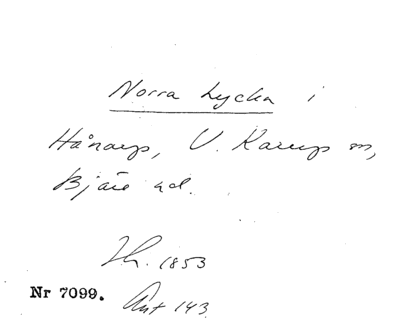 Norra Lycka i
Hånarp, V. Karups sn,
Bjäre hd.
Th. 1853
Nr 7099. Ant 143